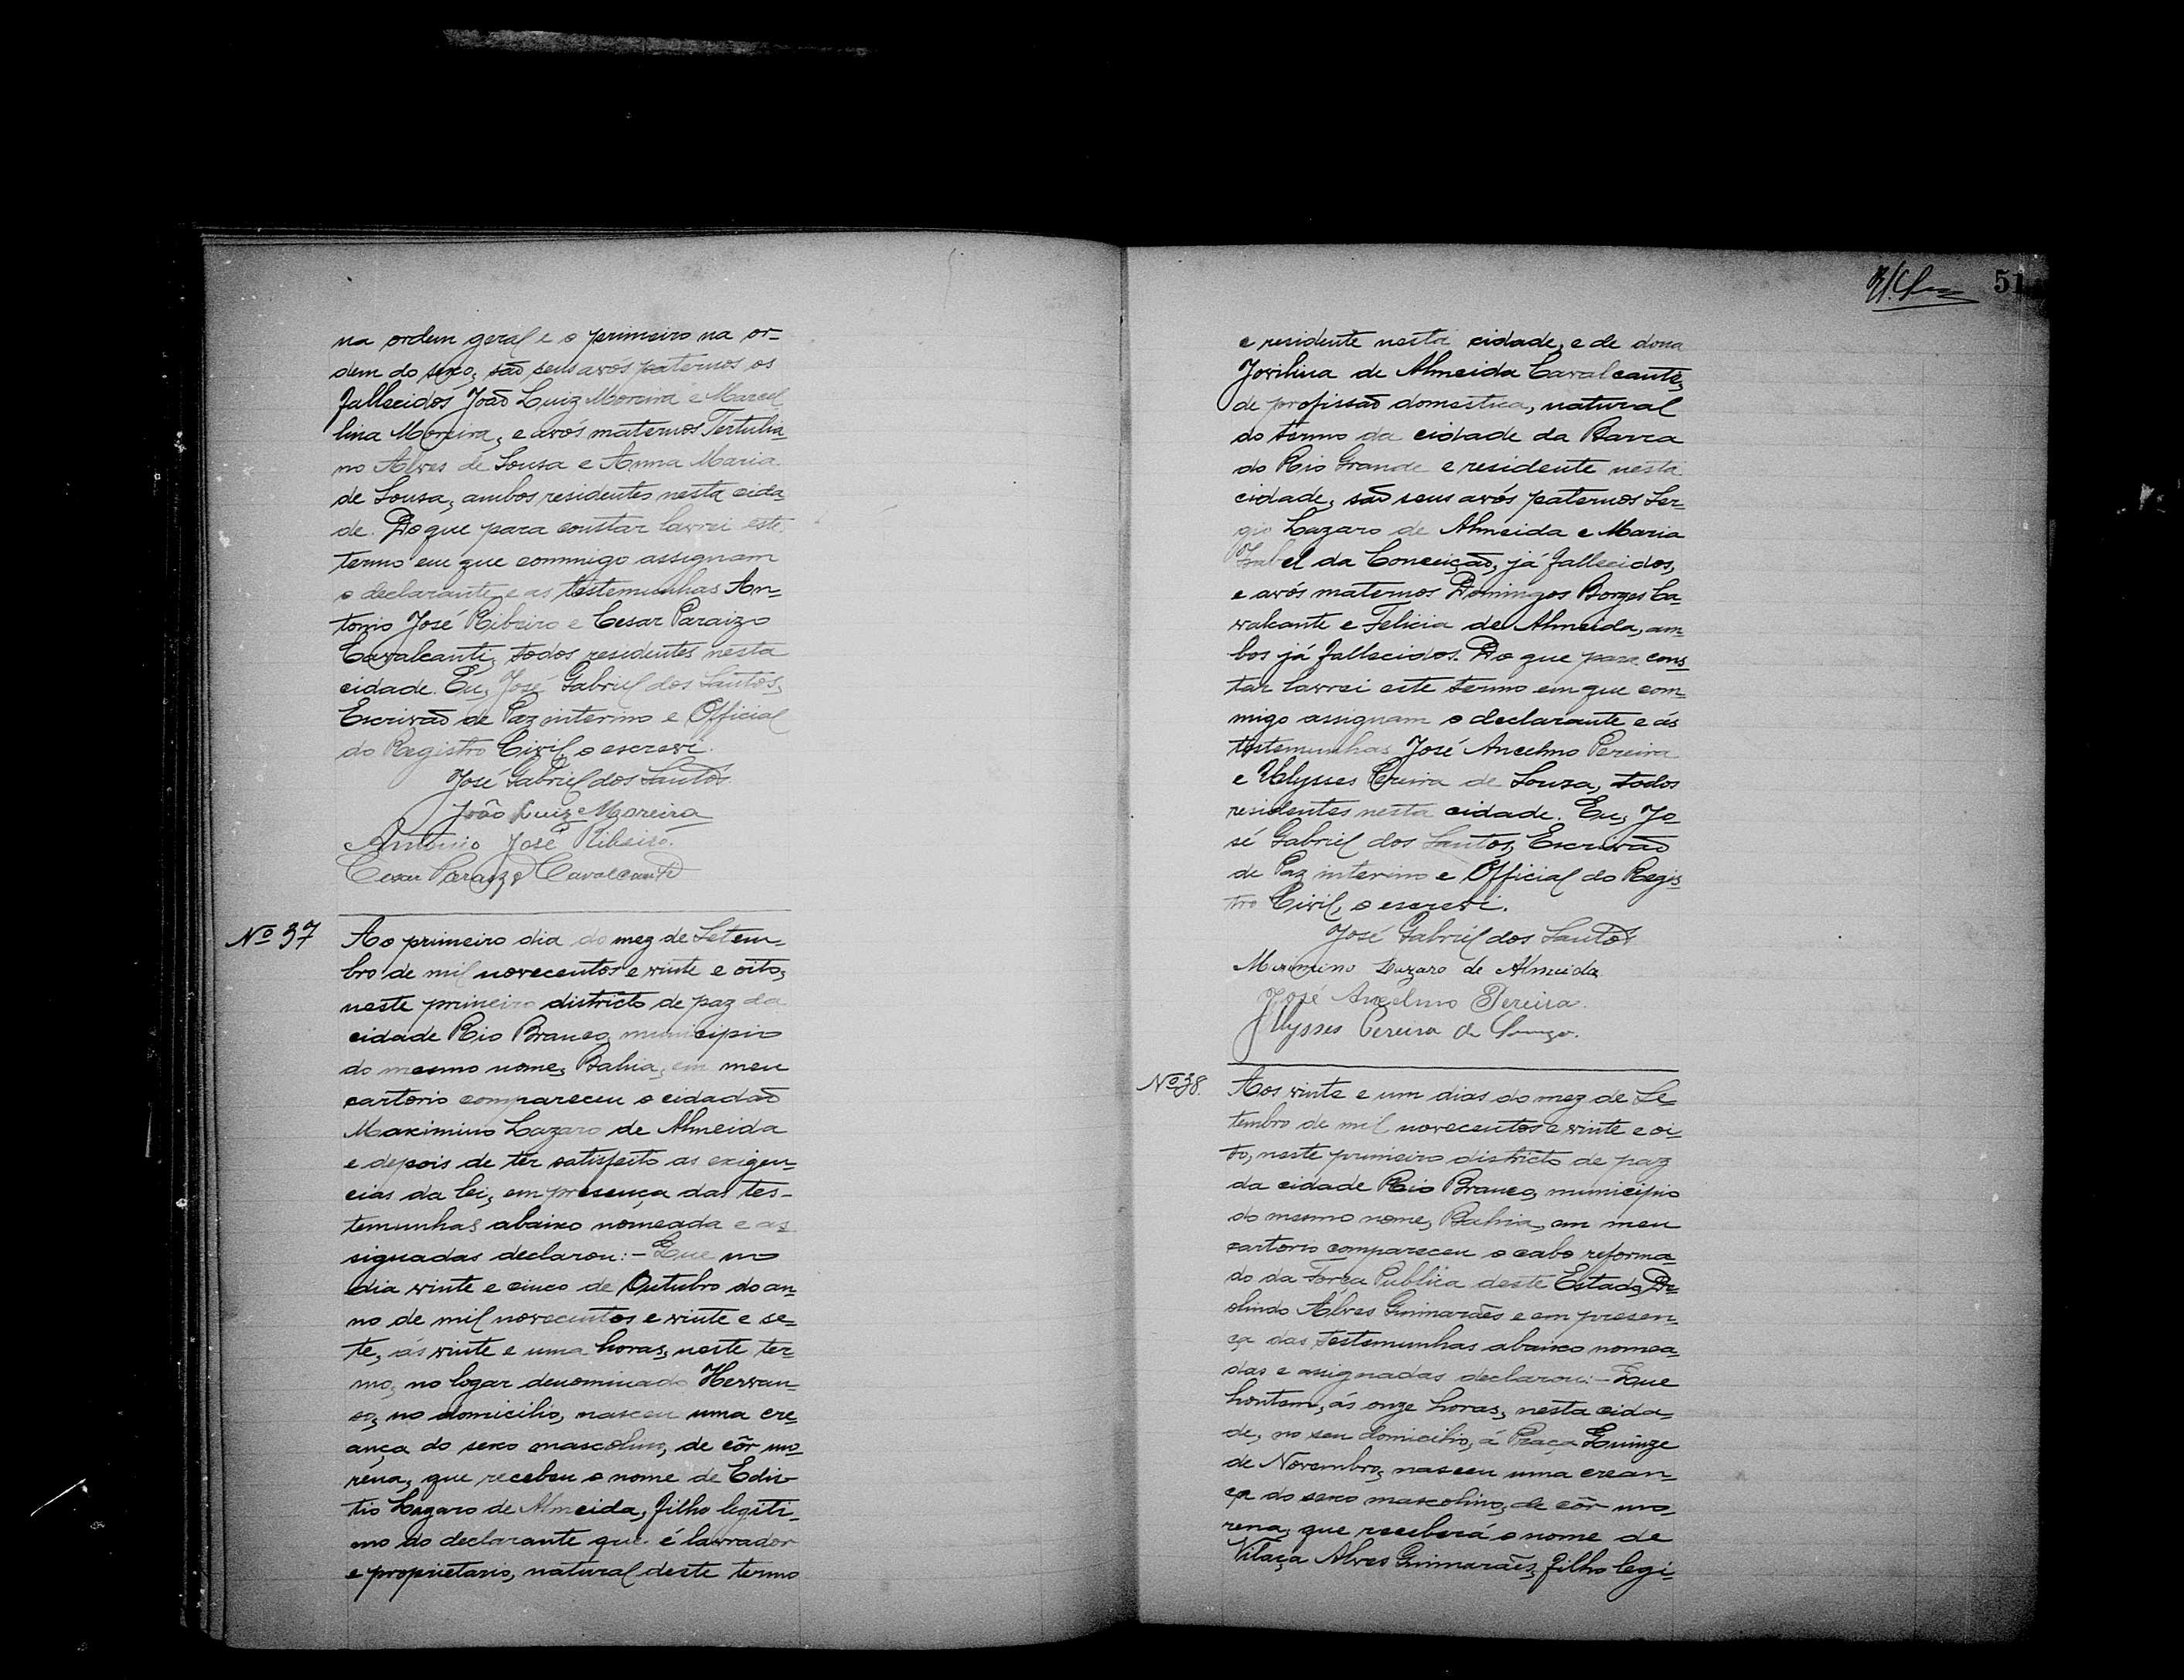 na ordem geral e o primeiro na or-
dem do sexo, são seus avós paternos os
fallecidos João Luiz Moreira e Marcel
lina Moreira, e avós maternos Tertulia
no Alves de Sousa e Anna Maria
de Sousa, ambos residentes nesta cida
de. Do que para constar lavrei este
termo em que commigo assignam
o declarante e as testemunhas An-
tonio José Ribeiro e Cesar Paraizo
Cavalcanti, todos residentes nesta
cidade. Eu, José Gabriel dos Santos,
Escrivão de Paz interino e Official
do Registro Civil, o escrevi.
José Gabriel dos Santos
João Luiz Moreira
Antonio José Ribeiro.
Cesar Paraizo Cavalcante
Nº 37
Ao primeiro dia do mez de Setem-
bro de mil novecentos e vinte e oito,
neste primeiro districto de paz da
cidade Rio Branco, municipio
do mesmo nome, Bahia, em meu
cartorio compareceu o cidadão
Maximino Lazaro de Almeida
e depois de ter satisfeito as exigen-
cias da lei, em presença das tes-
temunhas abaixo nomeada e as
signadas declarou:- Que no
dia vinte e cinco de Outubro do an-
no de mil novecentos e vinte e se-
te, ás vinte e uma horas, neste ter-
mo, no logar denominado
no domicilio, nasceu uma cre-
ança do sexo mascolino, de côr mo-
rena, que recebeu o nome de Edir
tio Lazaro de Almeida, filho legiti-
mo do declarante que é lavrador
e proprietario, natural deste termo
51
e residente nesta cidade, e de dona
Jovilina de Almeida Cavalcante,
de profissão domestica, natural
do termo da cidade da Barra
do Rio Grande e residente nesta
cidade, são seus avós paternos Ser-
gio Lazaro de Almeida e Maria
Isabel da Conceição, já fallecidos,
e avós maternos Domingos Borges Ca-
valcante e Felicia de Almeida, am-
bos já fallecidos. Do que para cons
tar lavrei este termo em que com-
migo assignam o declarante e ás
testemunhas José Ancelmo Pereira
e Ulysses Pereira de Sousa, todos
residentes nesta cidade. Eu, Jo-
sé Gabriel dos Santos, Escrivão
de Paz interino e Official do Regis
tro Civil, o escrevi.
José Gabriel dos Santos
Maximino Lazaro de Almeida
José Ancelmo Pereira
Ulysses Pereira de Souza.
Nº 38.
Aos vinte e um dias do mez de Se-
tembro de mil novecentos e vinte e oi-
to, neste primeiro districto de paz
da cidade Rio Branco, municipio
do mesmo nome, Bahia, em meu
cartorio compareceu o cabo reforma-
do da Força Publica deste Estado, De-
olindo Alves Guimarães e em presen-
ça das testemunhas abaixo nomea-
das e assignadas declarou:- Que
hontem, ás onze horas, nesta cida-
de, no seu domicilio, á Praça Quinze
de Novembro, nasceu uma crean-
ça do sexo mascolino, de côr mo-
rena, que receberá o nome de
Vilaça Alves Guimarães, filho legi-